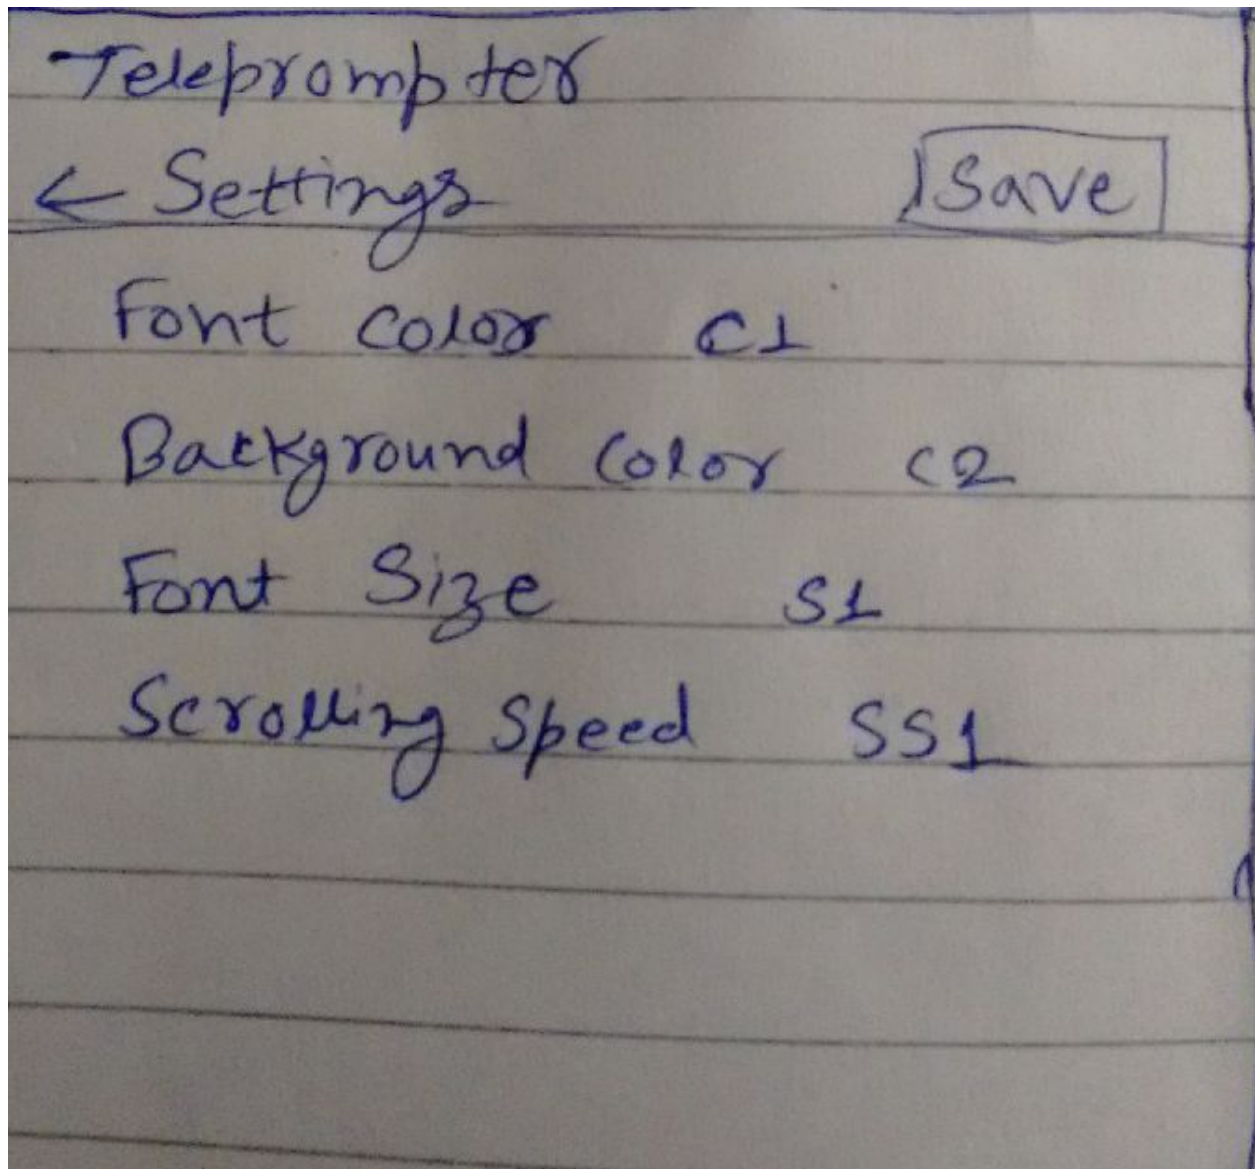 Teleprompter
← Settings Save
Font Color C1
Background Color C2
Font Size S1
Scrolling Speed SS1